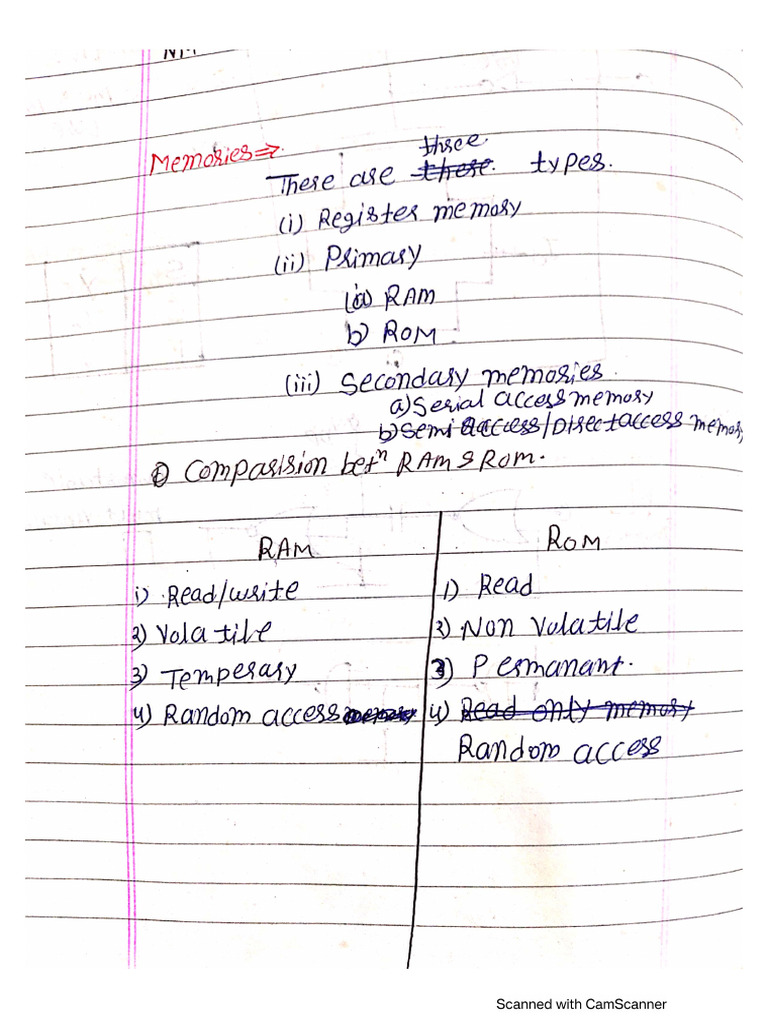 Memories ⇒
three
There are these types.
(i) Register memory
(ii) Primary
(a) RAM
b) ROM
(iii) Secondary memories.
a) Serial access memory
b) Semi access/Direct access memory
Comparision betn RAM & ROM.
RAM | ROM
1) Read/write | 1) Read
2) Volatile | 2) Non Volatile
3) Temperary | 3) Permanant.
4) Random access memory | 4) Read only memory
Random access
Scanned with CamScanner